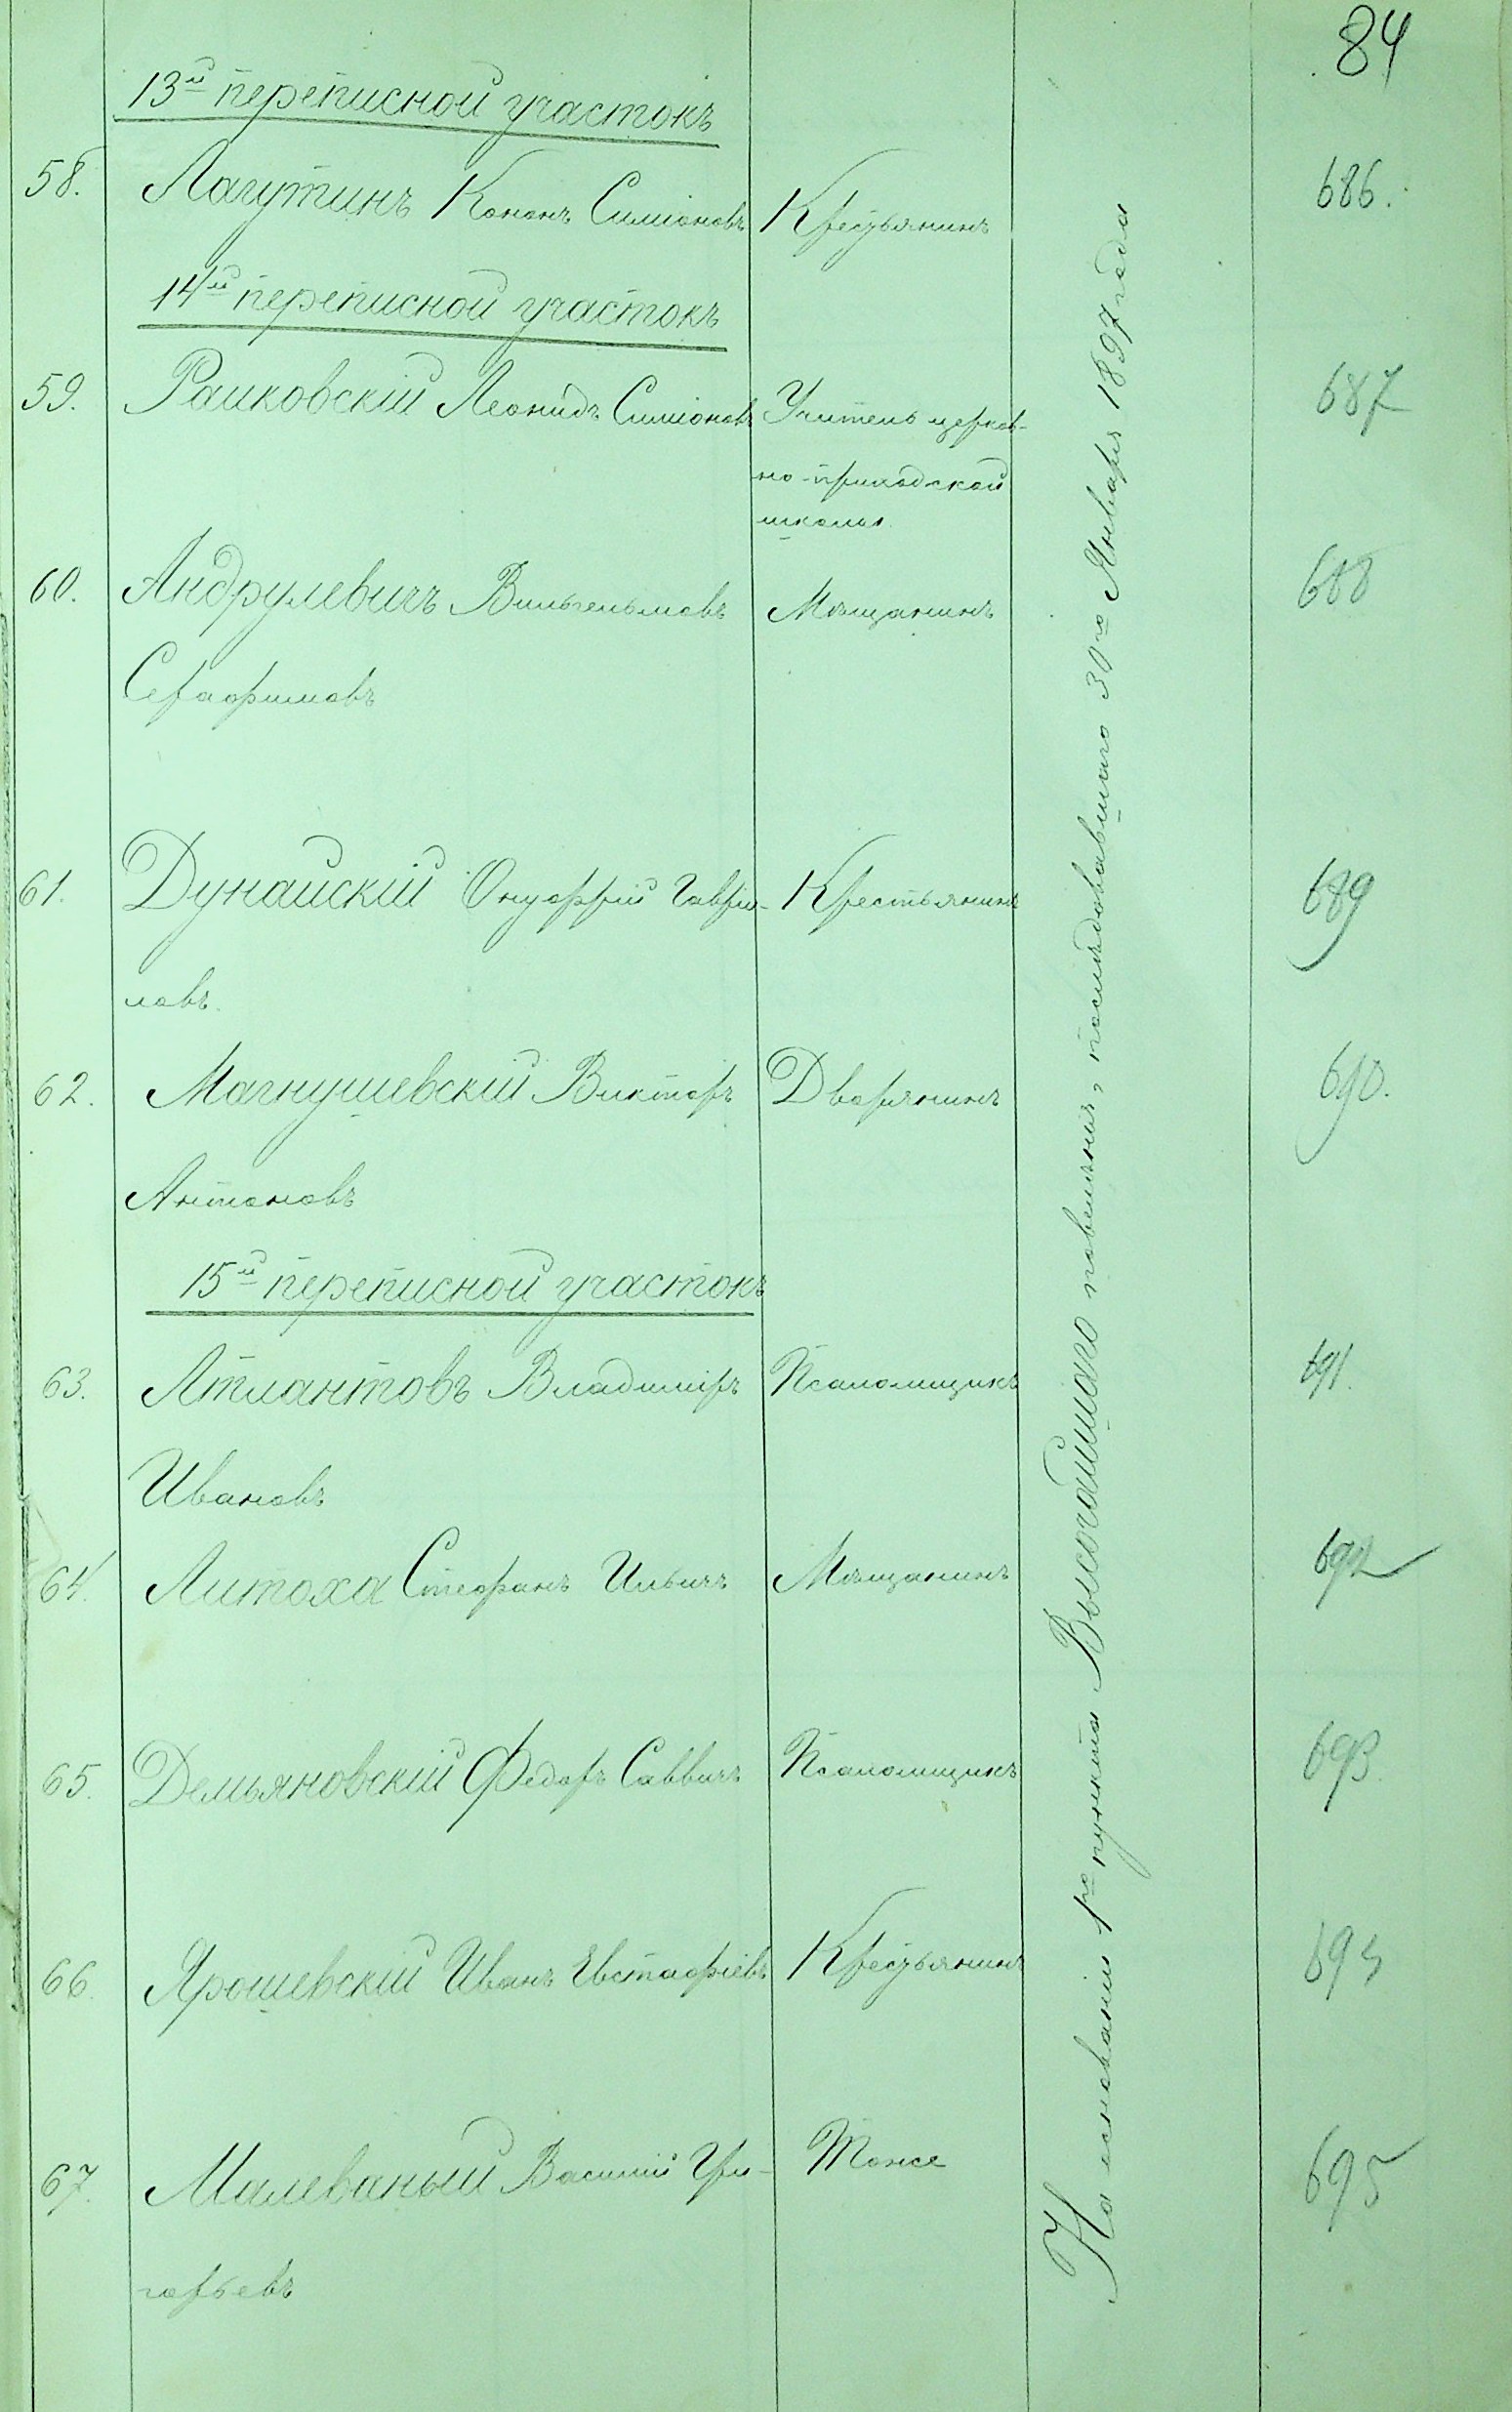 84
13й переписной участокъ
58. Лагутинъ Кононъ Симіоновъ Крестьянинъ 686.
14й переписной участокъ
59. Рашковскій Леонидъ Симіоновъ Учитель церков- 687
но-приходской
школы
60. Андрулевичъ Вильгельмовъ Мѣщанинъ 688
Серафимовъ
61. Дунайскій Онуфрій Гаври- Крестьянинъ 689
ловъ.
62. Магнушевскій Викторъ Дворянинъ 690.
Антоновъ
15й переписной участокъ
63. Атлантовъ Владиміръ Псаломщикъ 691.
Ивановъ
64. Литоха Стефанъ Ильичъ Мѣщанинъ 692
65. Демьяновскій Федоръ Саввичъ Псаломщикъ 693
66. Ярошевскій Иванъ Евстафіевъ Крестьянинъ 694
67. Малеваный Василій Гри- Тоже 695
горьевъ
На основаніи 1го пункта Высочайшаго повелѣнія, послѣдовавшаго 30го Января 1897 года